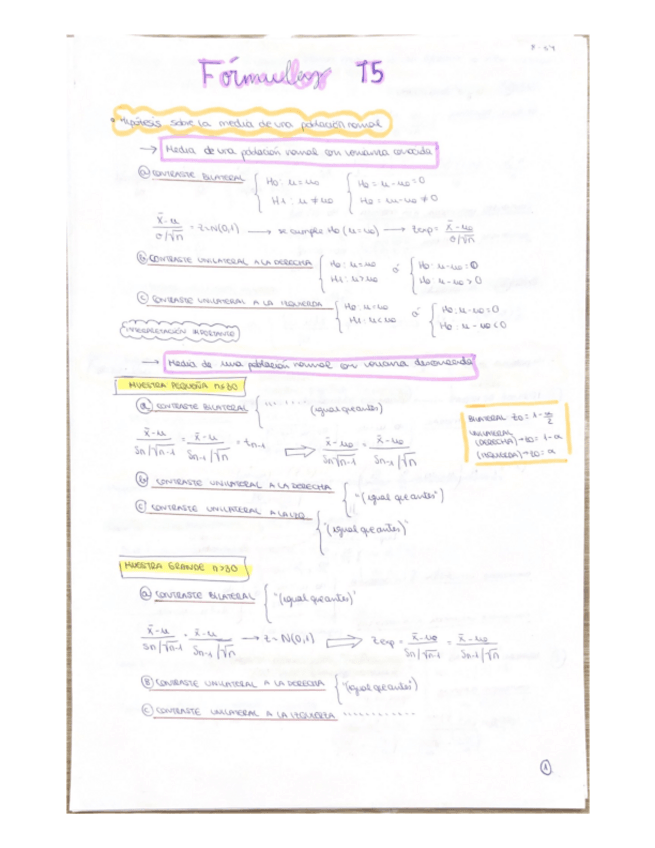 Fórmulas T5
• Hipótesis sobre la media de una población normal
→ Media de una población normal con varianza conocida
ⓐ CONTRASTE BILATERAL { H₀: μ = μ₀ { H₀ = μ - μ₀ = 0
H₁: μ ≠ μ₀ H₀ = μ - μ₀ ≠ 0
x̄ - μ / σ/√n = Z ≈ N(0,1) → se cumple H₀ (μ = μ₀) → Zexp = x̄ - μ₀ / σ/√n
ⓑ CONTRASTE UNILATERAL A LA DERECHA { H₀: μ = μ₀ ó { H₀: μ - μ₀ = 0
H₁: μ > μ₀ H₀: μ - μ₀ > 0
ⓒ CONTRASTE UNILATERAL A LA IZQUIERDA { H₀: μ - μ₀ ó { H₀: μ - μ₀ = 0
H₁: μ < μ₀ H₀: μ - μ₀ < 0
INTERPRETACIÓN IMPORTANTE
→ Media de una población normal con varianza desconocida
MUESTRA PEQUEÑA n≤30
ⓐ CONTRASTE BILATERAL { ....... (igual que antes)
x̄ - μ / Sn/√n-1 = x̄ - μ / Sn-1/√n = tn-1 ⇒ x̄ - μ₀ / Sn/√n-1 = x̄ - μ₀ / Sn-1/√n
BILATERAL Z₀ = 1 - α/2
UNILATERAL
(DERECHA) → Z₀ = 1 - α
(IZQUIERDA) → Z₀ = α
ⓑ CONTRASTE UNILATERAL A LA DERECHA { "(igual que antes)
ⓒ CONTRASTE UNILATERAL A LA IZQ { "(igual que antes)"
MUESTRA GRANDE n>30
ⓐ CONTRASTE BILATERAL { "(igual que antes)"
x̄ - μ / Sn/√n-1 = x̄ - μ / Sn-1/√n → Z ≈ N(0,1) ⇒ Zexp = x̄ - μ₀ / Sn/√n-1 = x̄ - μ₀ / Sn-1/√n
Ⓑ CONTRASTE UNILATERAL A LA DERECHA { "(igual que antes)
ⓒ CONTRASTE UNILATERAL A LA IZQUIERDA ............
①